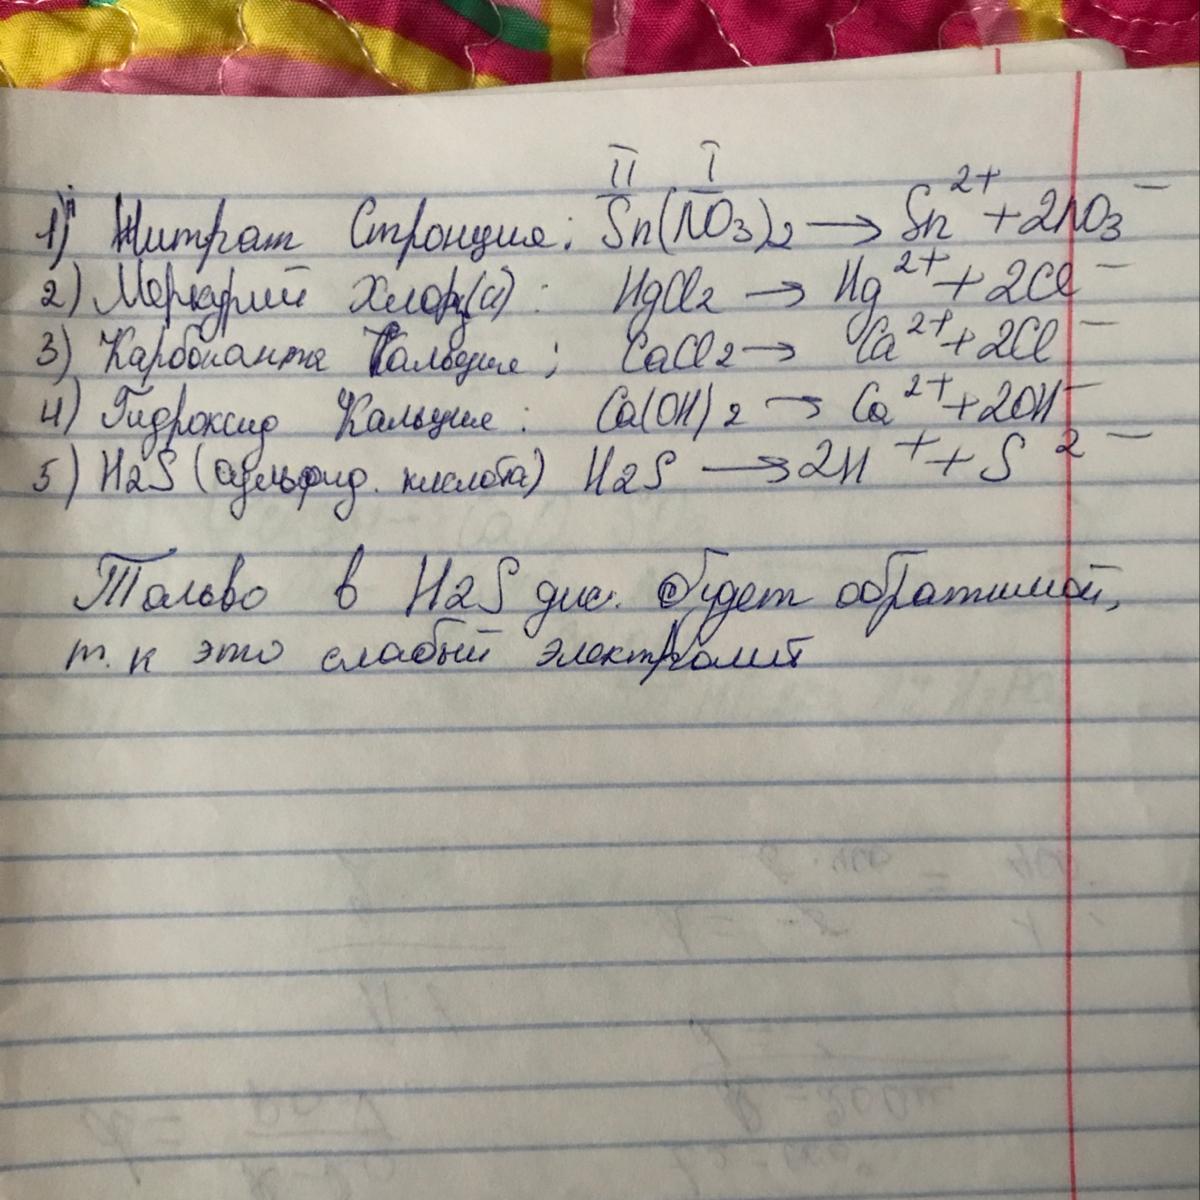 II I
1) Нитрат Стронция: Sn(NO3)2 → Sn2+ + 2NO3-
2) Меркурий Хлор(а): HgCl2 → Hg2+ + 2Cl-
3) Карбонанта Кальция; CaCl2 → Ca2+ + 2Cl-
4) Гидроксид Кальция: Ca(OH)2 → Ca2+ + 2OH-
5) H2S (сульфид. кислота) H2S → 2H+ + S2-
Только в H2S дис. будет обратимой,
т.к это слабый электролит